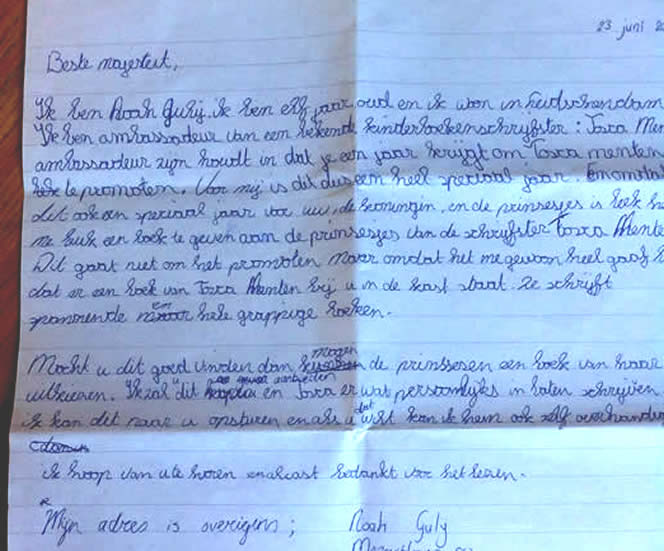 23 juni 2
Beste majesteit,
Ik ben Noah Gulij. ik ben elf jaar oud en ik woon in Leidschendam
Ik ben ambassadeur van een bekende kinderboekenschrijfster: Tosca Men
ambassadeur zijn houdt in dat je een jaar krijgt om Tosca menten
te promoten. Voor mij is dit dus een heel speciaal jaar. En omdat
dit ook een speciaal jaar voor uw, de koningin, en de prinsesjes is leek he
me leuk een boek te geven aan de prinsesjes van de schrijfster Tosca Mente
Dit gaat niet om het promoten maar omdat het me gewoon heel gaaf
dat er een boek van Tosca Menten bij u in de kast staat. Ze schrijft
spannende en hele grappige boeken.
Mocht u dit goed vinden dan mogen de prinsessen een boek van haar
uitkiezen. Ik zal dit aanbieden en Tosca er wat persoonlijks in laten schrijven
ik kan dit naar u opsturen en als u dat wilt kan ik hem ook zelf overhandig
ik hoop van u te horen en alvast bedankt voor het lezen.
Mijn adres is overigens; Noah Guly